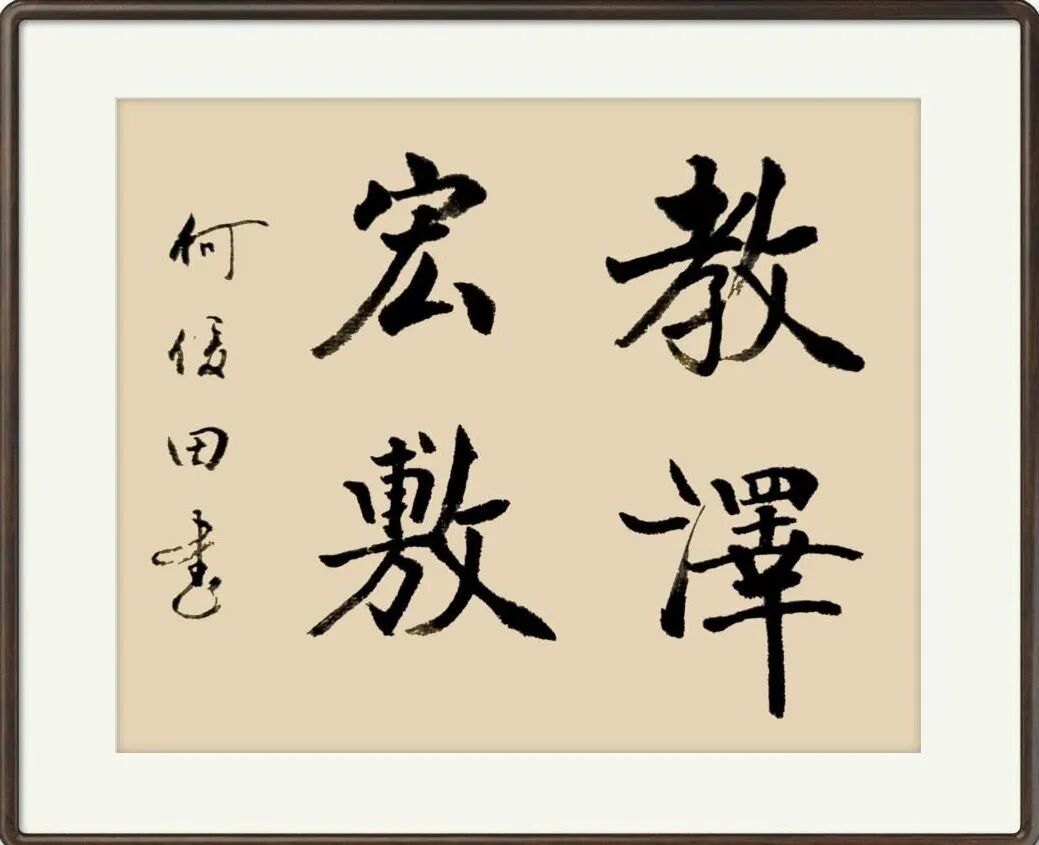 教澤
宏敷
何俊田書